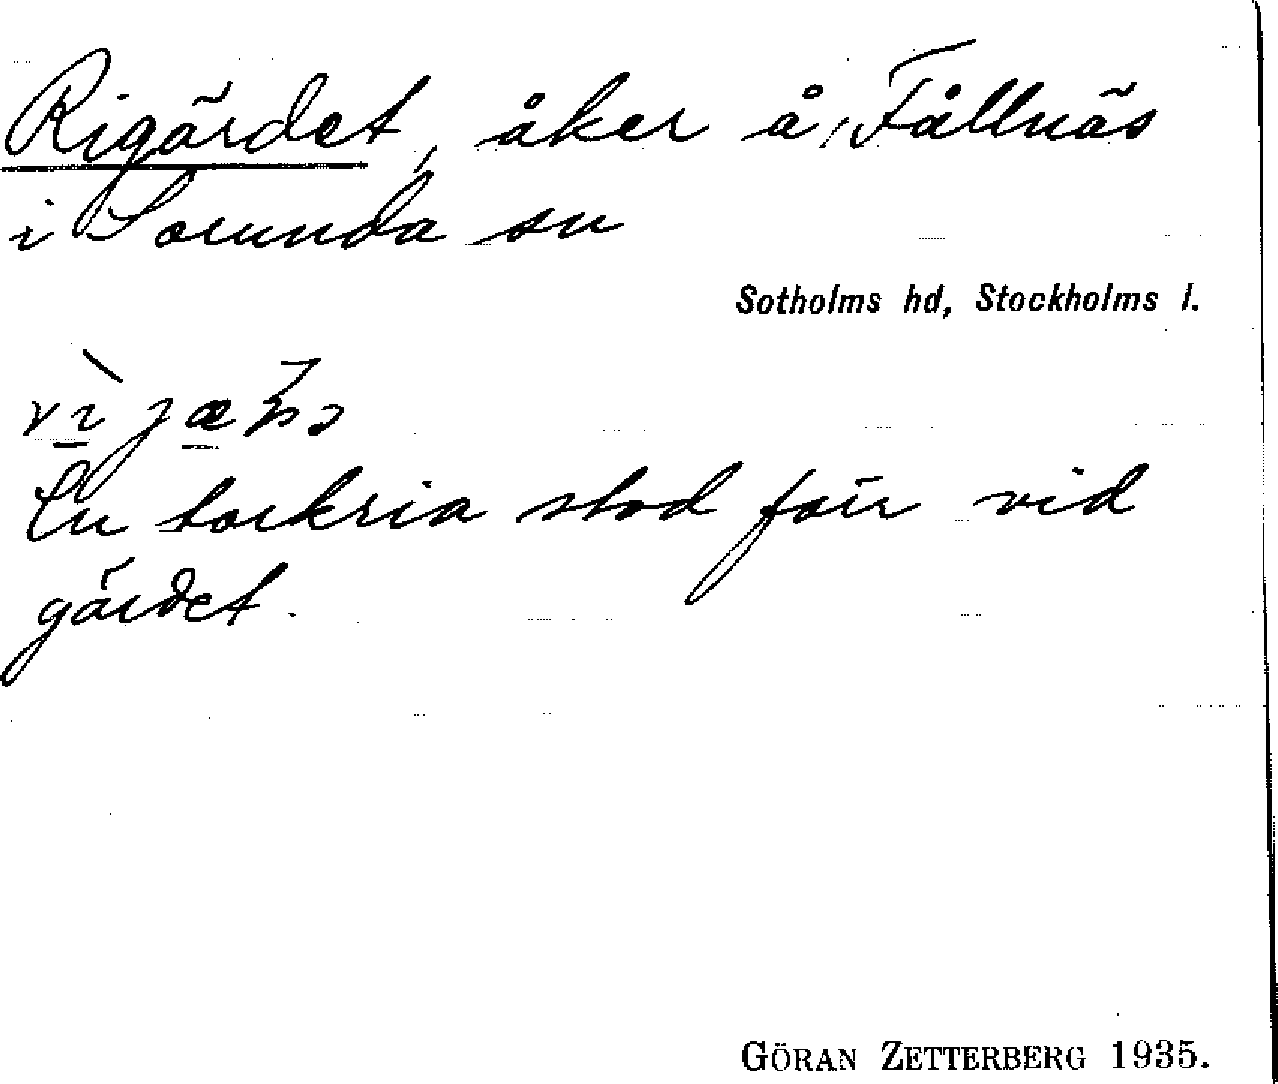 Rigärdet, åker å Fållnäs
i Sorunda sn
Sotholms hd, Stockholms l.
En torkria stod förr vid
gärdet.
GÖRAN ZETTERBERG 1935.